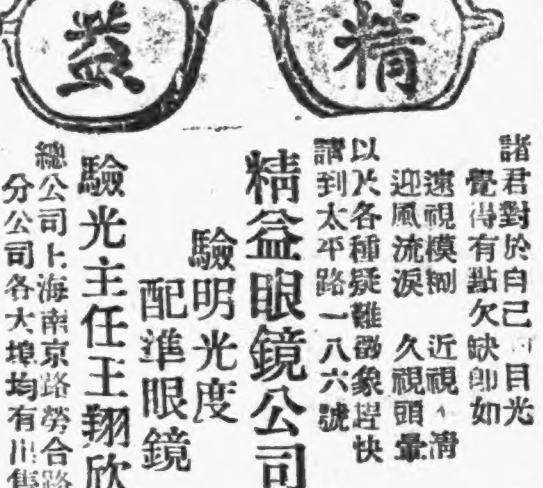 精益
諸君對於自己目光
覺得有點欠缺即如
遠視模糊　近視　清
迎風流淚　久視頭暈
以及各種疑難徵象趕快
請到太平路一八六號
精益眼鏡公司
驗明光度
配準眼鏡
驗光主任王翔欣
總公司上海南京路勞合路
分公司各大埠均有出售